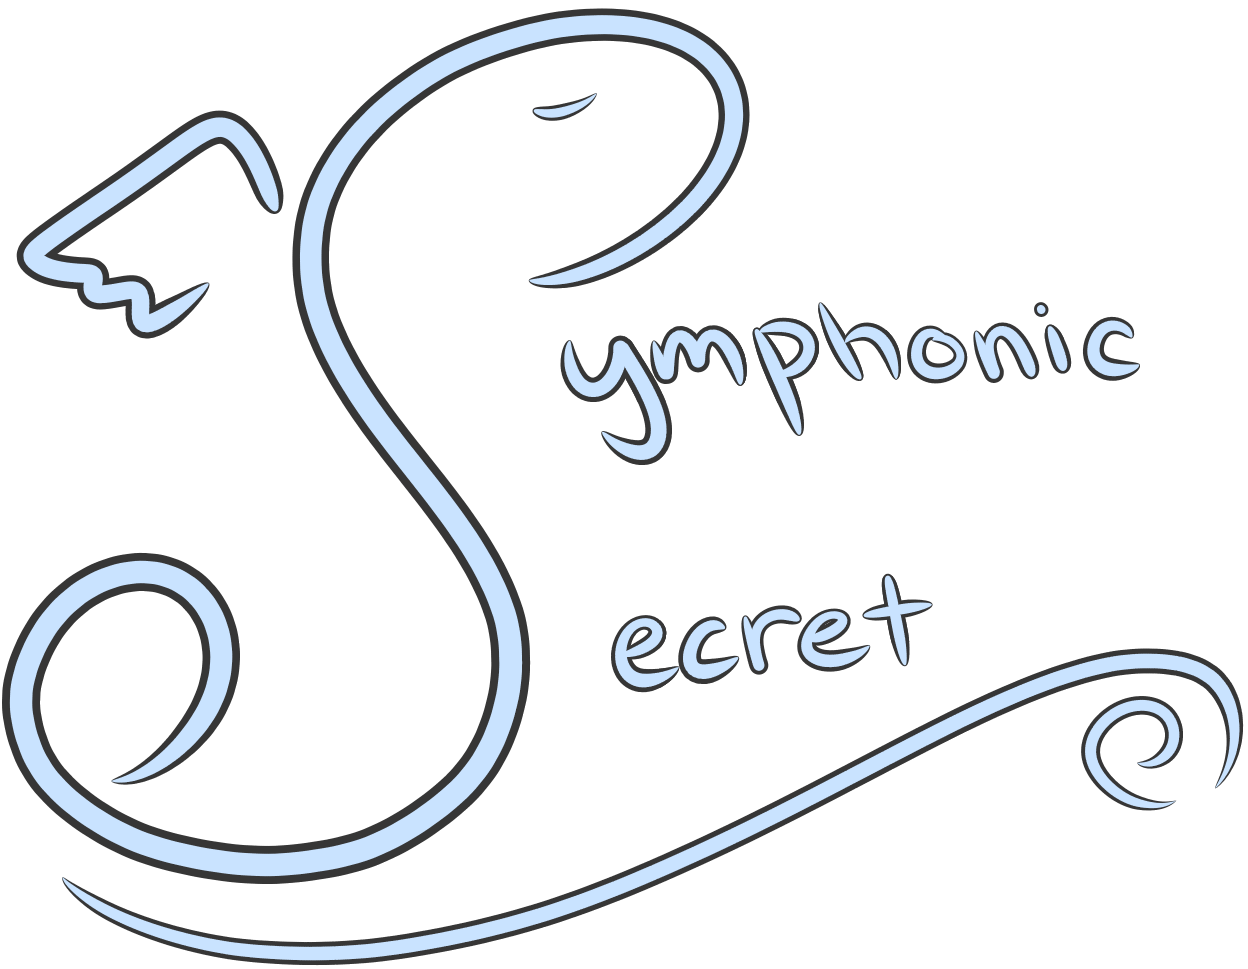 Symphonic
Secret